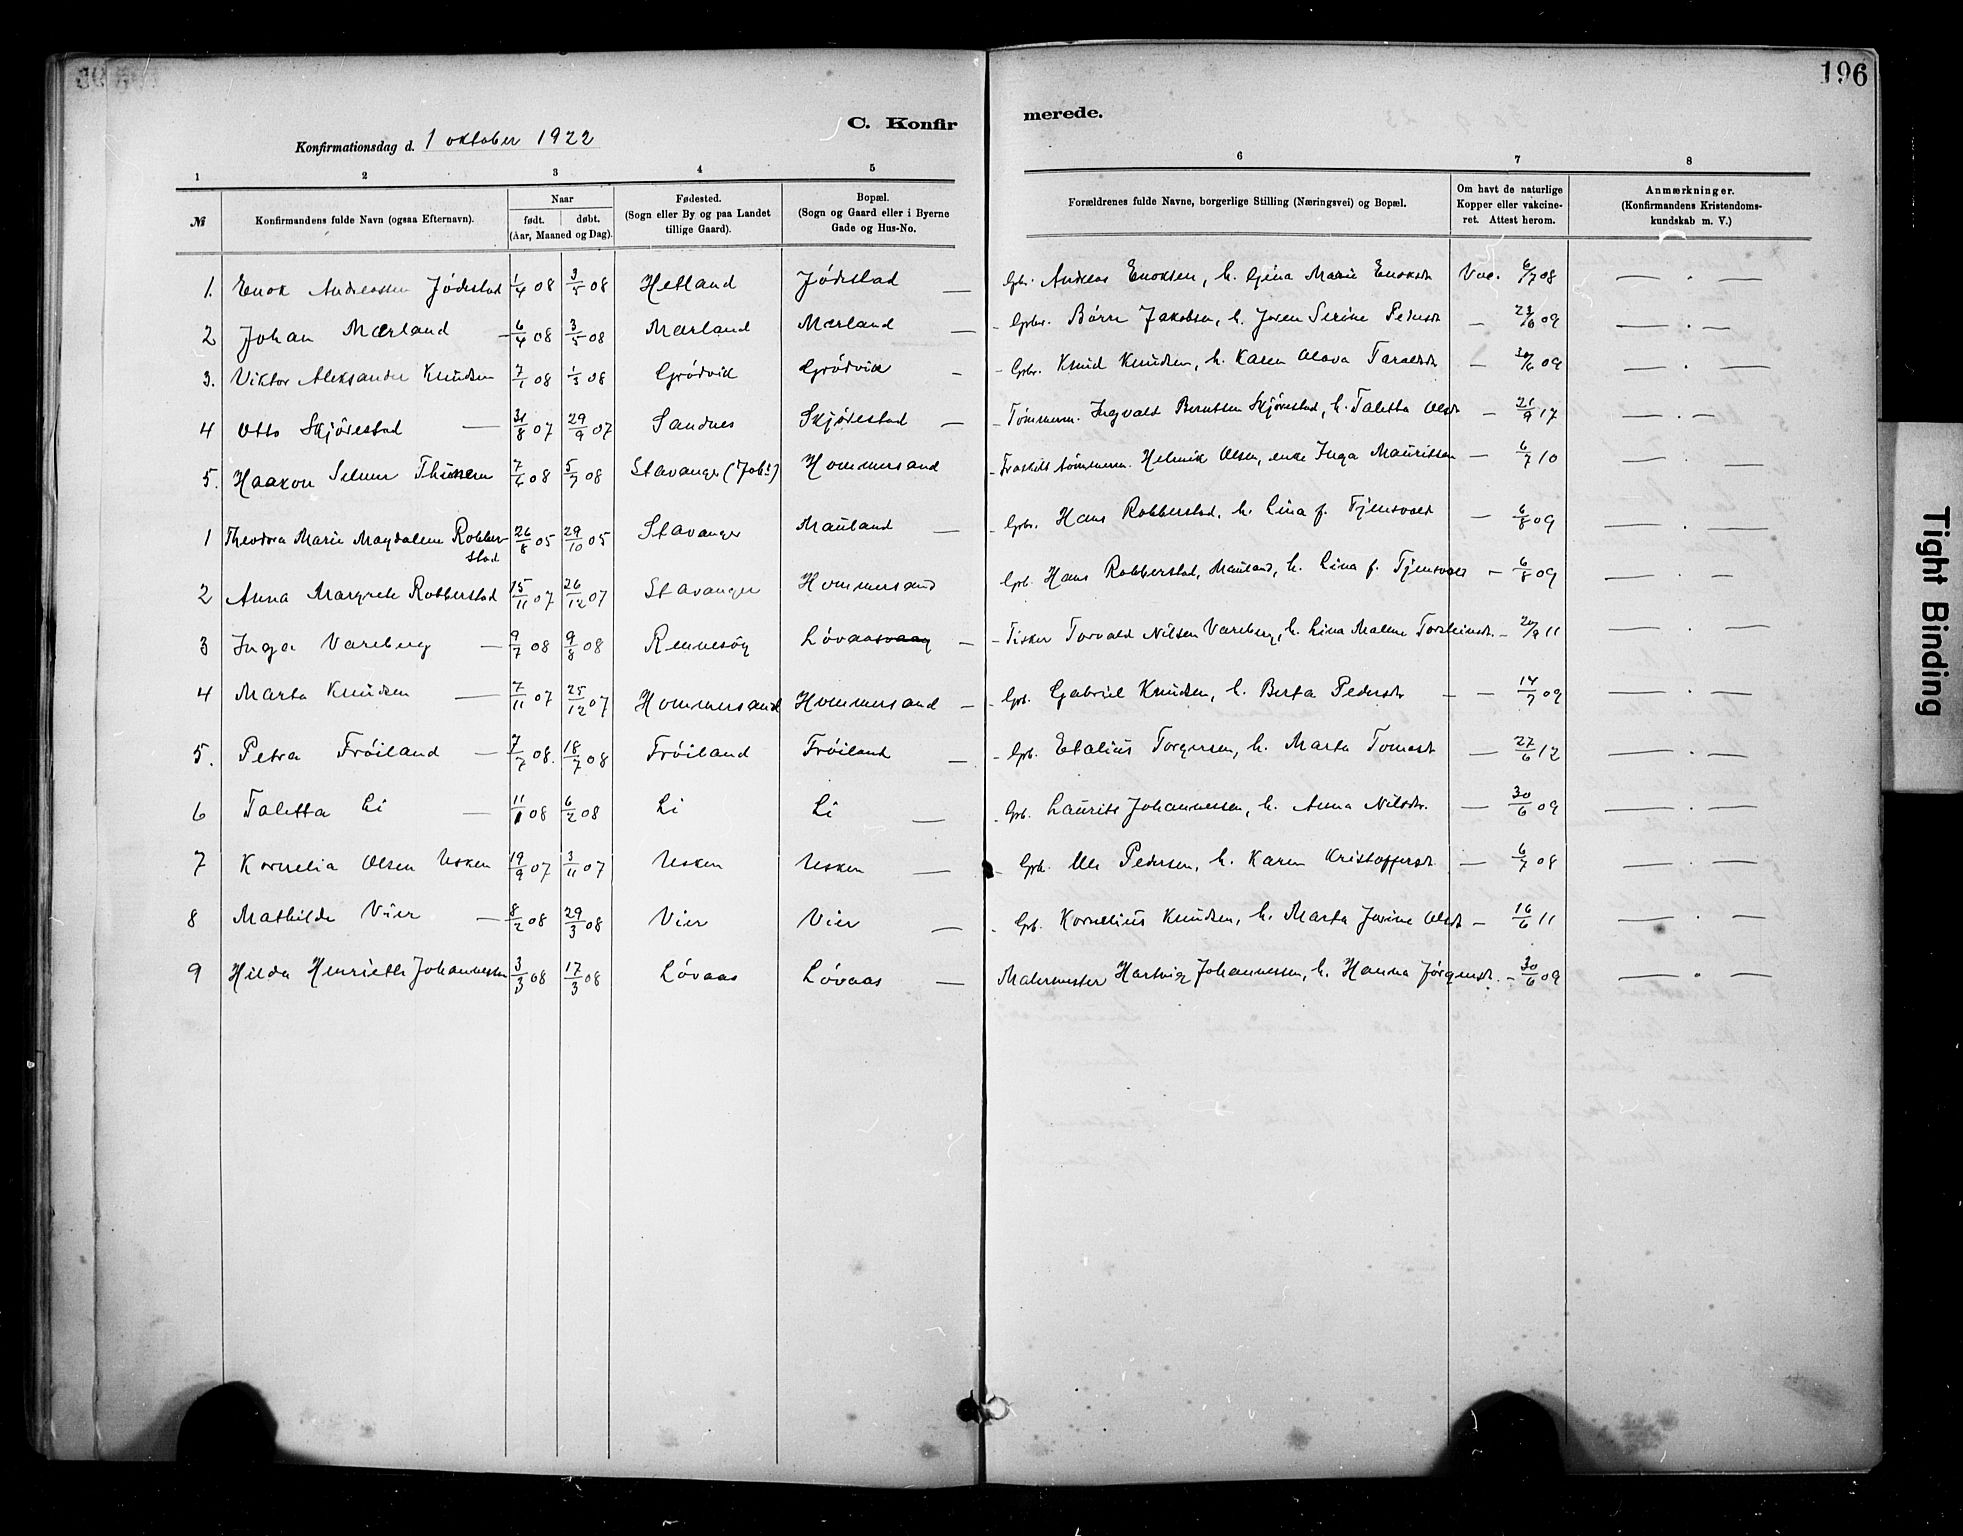 196
C. Konfirmerede.
Konfirmationsdag d. 1 oktober 1922
1 2 3 4 5 6 7 8
№ Konfirmandens fulde Navn (ogsaa Efternavn). Naar født. døbt. (Aar, Maaned og Dag). Fødested. (Sogn eller By og paa Landet tillige Gaard). Bopæl. (Sogn og Gaard eller i Byerne Gade og Hus-No. Forældrenes fulde Navne, borgerlige Stilling (Næringsvei) og Bopæl. Om havt de naturlige Kopper eller vakcineret. Attest herom. Anmærkninger. (Konfirmandens Kristendomskundskab m. V.)
1. Enok Andreassen Jødestad 1/4 08 3/5 08 Hetland Jødestad — Gbr. Andreas Enoksen, h. Gina Marie Enoksdt Vac. 6/7 08 — . —
2 Johan Mærland — 6/4 08 3/5 08 Mærland Mærland — Gbr. Børre Jakobsen, h. Joren Serine Pedersdt — 23/6 09 — . —
3. Viktor Aleksander Knudsen 7/1 08 1/3 08 Grødvik Grødvik — Gbr. Knud Knudsen, h. Karen Olava Taraldsdt — 30/6 09 — . —
4 Otto Skjørestad — 31/8 07 29/9 07 Sandnes Skjørestad — Tømmerm. Ingvald Berntsen Skjørestad, h. Taletta Olsdt — 21/9 17 — . —
5. Haakon Selmer Thunem 7/6 08 5/7 08 Stavanger (Joh:) Hommersand — Fraskilt tømmerm. Helmik Olsen, enke Inga Mauritsen — 6/7 10 — . —
1 Theodora Marie Magdalene Robberstad 26/8 05 29/10 05 Stavanger Mauland — Gbr. Hans Robberstad, h. Lina f. Tjensvold — 6/8 09 — . —
2 Anna Margrete Robberstad 15/11 07 26/12 07 Stavanger Hommersand Gb. Hans Robberstad, Mauland, h. Lina f. Tjensvold — 6/8 09 — . —
3 Inga Vareberg — 9/7 08 9/8 08 Rennesøy Løvaasvaag — Fisker Torvald Nilsen Vareberg, h. Lina Malene Torsteinsdt. — 20/9 11 — . —
4 Marta Knudsen — 7/11 07 25/12 07 Hommersand Hommersand — Gb. Gabriel Knudsen, h. Berta Pedersdt — — 14/7 09 — . —
5. Petra Frøiland — 7/7 08. 18/7 08 Frøiland Frøiland — Gb. Edalius Torgersen, h. Marta Tomasdt — 27/6 12 — . —
6 Taletta Li — 11/1 08 6/2 08 Li Li — Gb. Laurits Johannessen, h. Anna Nilsdtr. — 30/6 09 — . —
7 Kornelia Olsen Usken 19/9 07 3/11 07 Usken Usken — Gb. Ole Pedersen, h. Karen Kristoffersdt — 6/7 08 — . —
8 Mathilde Vier — 8/2 08 29/3 08 Vier Vier — Gb. Kornelius Knudsen, h. Marta Jorine Olsdt — 16/6 11 — . —
9 Hilda Henriette Johannessen 3/3 08 17/3 08 Løvaas Løvaas — Malermester Hartvig Johannessen, h. Hanna Jørgensdt. — 30/6 09 — . —
Tight Binding